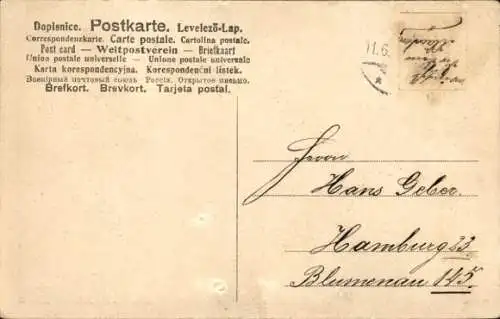 Dopisnice. Postkarte. Levelező-Lap.
Correspondenzkarte. Carte postale. Cartolina postale.
Post card — Weltpostverein — Briefkaart
Union postale universelle — Unione postale universale
Karta korespondencyjna. Korespondenční lístek.
Всемірный почтовый союзъ Россія. Открытое письмо.
Brefkort. Brevkort. Tarjeta postal.
11.6.
Herrn
Hans Geber.
Hamburg 23.
Blumenau 145.